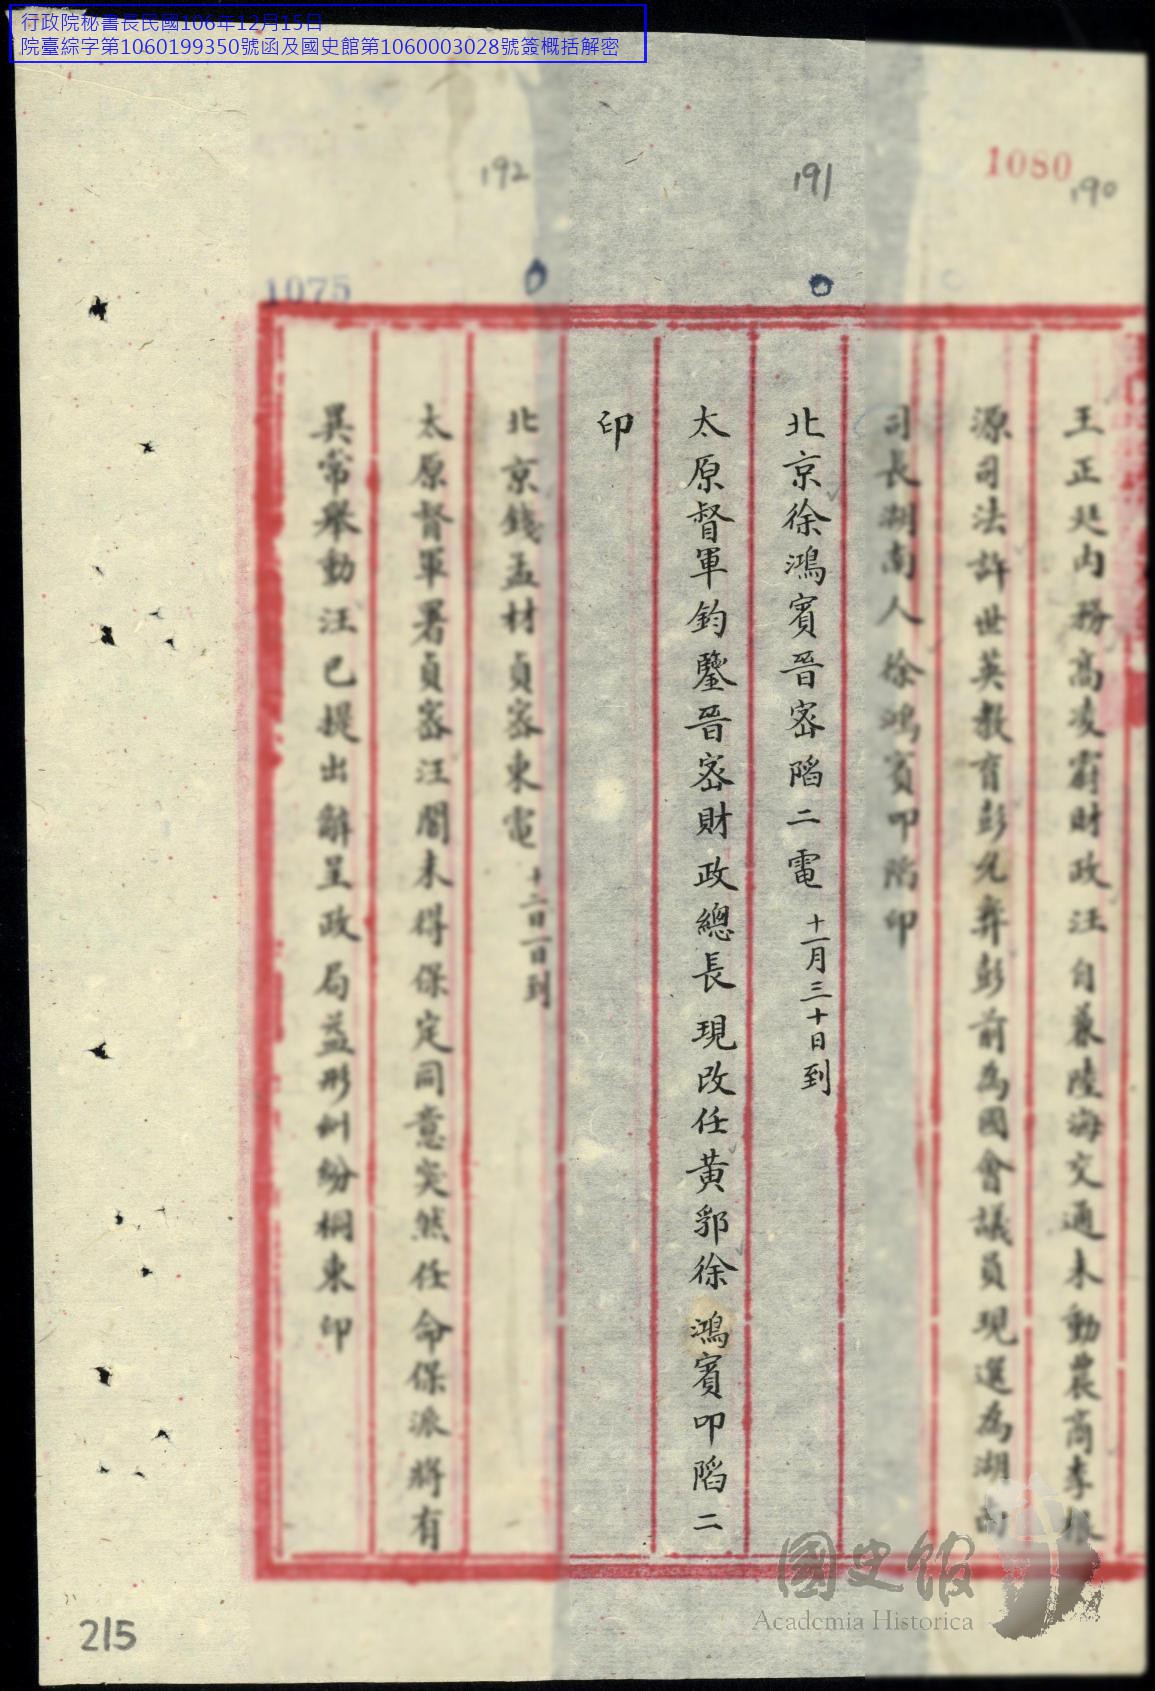 行政院秘書長民國106年12月15日
院臺綜字第1060199350號函及國史館第1060003028號簽概括解密
1080
190
191
192
1075
王正廷內務高凌霨財政汪自兼陸海交通未動農商李根
源司法許世英教育彭允彝彭前為國會議員現選為湖南
司長湖南人徐鴻賓叩陷印
北京徐鴻賓晉密陷二電 十一月三十日到
太原督軍鈞鑒晉密財政總長現改任黃郛徐鴻賓叩陷二
印
北京錢孟材貞密東電 十二月一日到
太原督軍署貞密汪閣未得保定同意突然任命保派將有
異常舉動汪已提出辭呈政局益形糾紛桐東印
215
國史館
Academia Historica